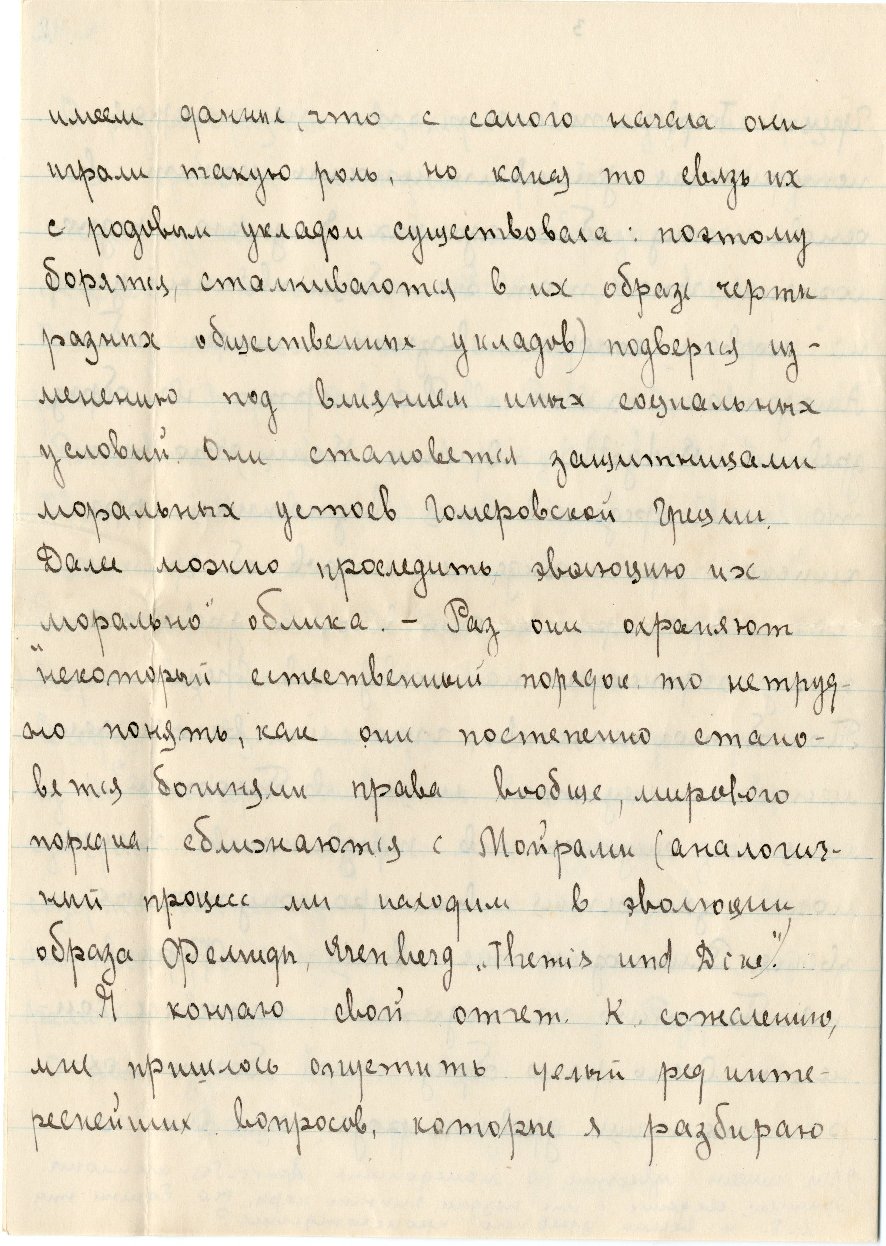 имеем данные, что с самого начала они
играли такую роль, но какая то связь их
с родовым укладом существовала: поэтому
борятся, сталкиваются в их образе черты
разных общественных укладов) подвергся из-
менению под влиянием иных социальных
условий. Они становятся защитницами
моральных устоев Гомеровской Греции.
Далее можно проследить эволюцию их
"морально" облика. – Раз они охраняют
"некоторый естественный порядок то нетруд-
но понять, как они постепенно стано-
вятся богинями права вообще, мирового
порядка, сближаются с Мойрами (аналогич-
ный процесс мы находим в эволюции
образа Фемиды, Ehrenberg „Themis und Dike").
Я кончаю свой отчет. К сожалению,
мне пришлось опустить целый ряд инте-
реснейших вопросов, которые я разбираю